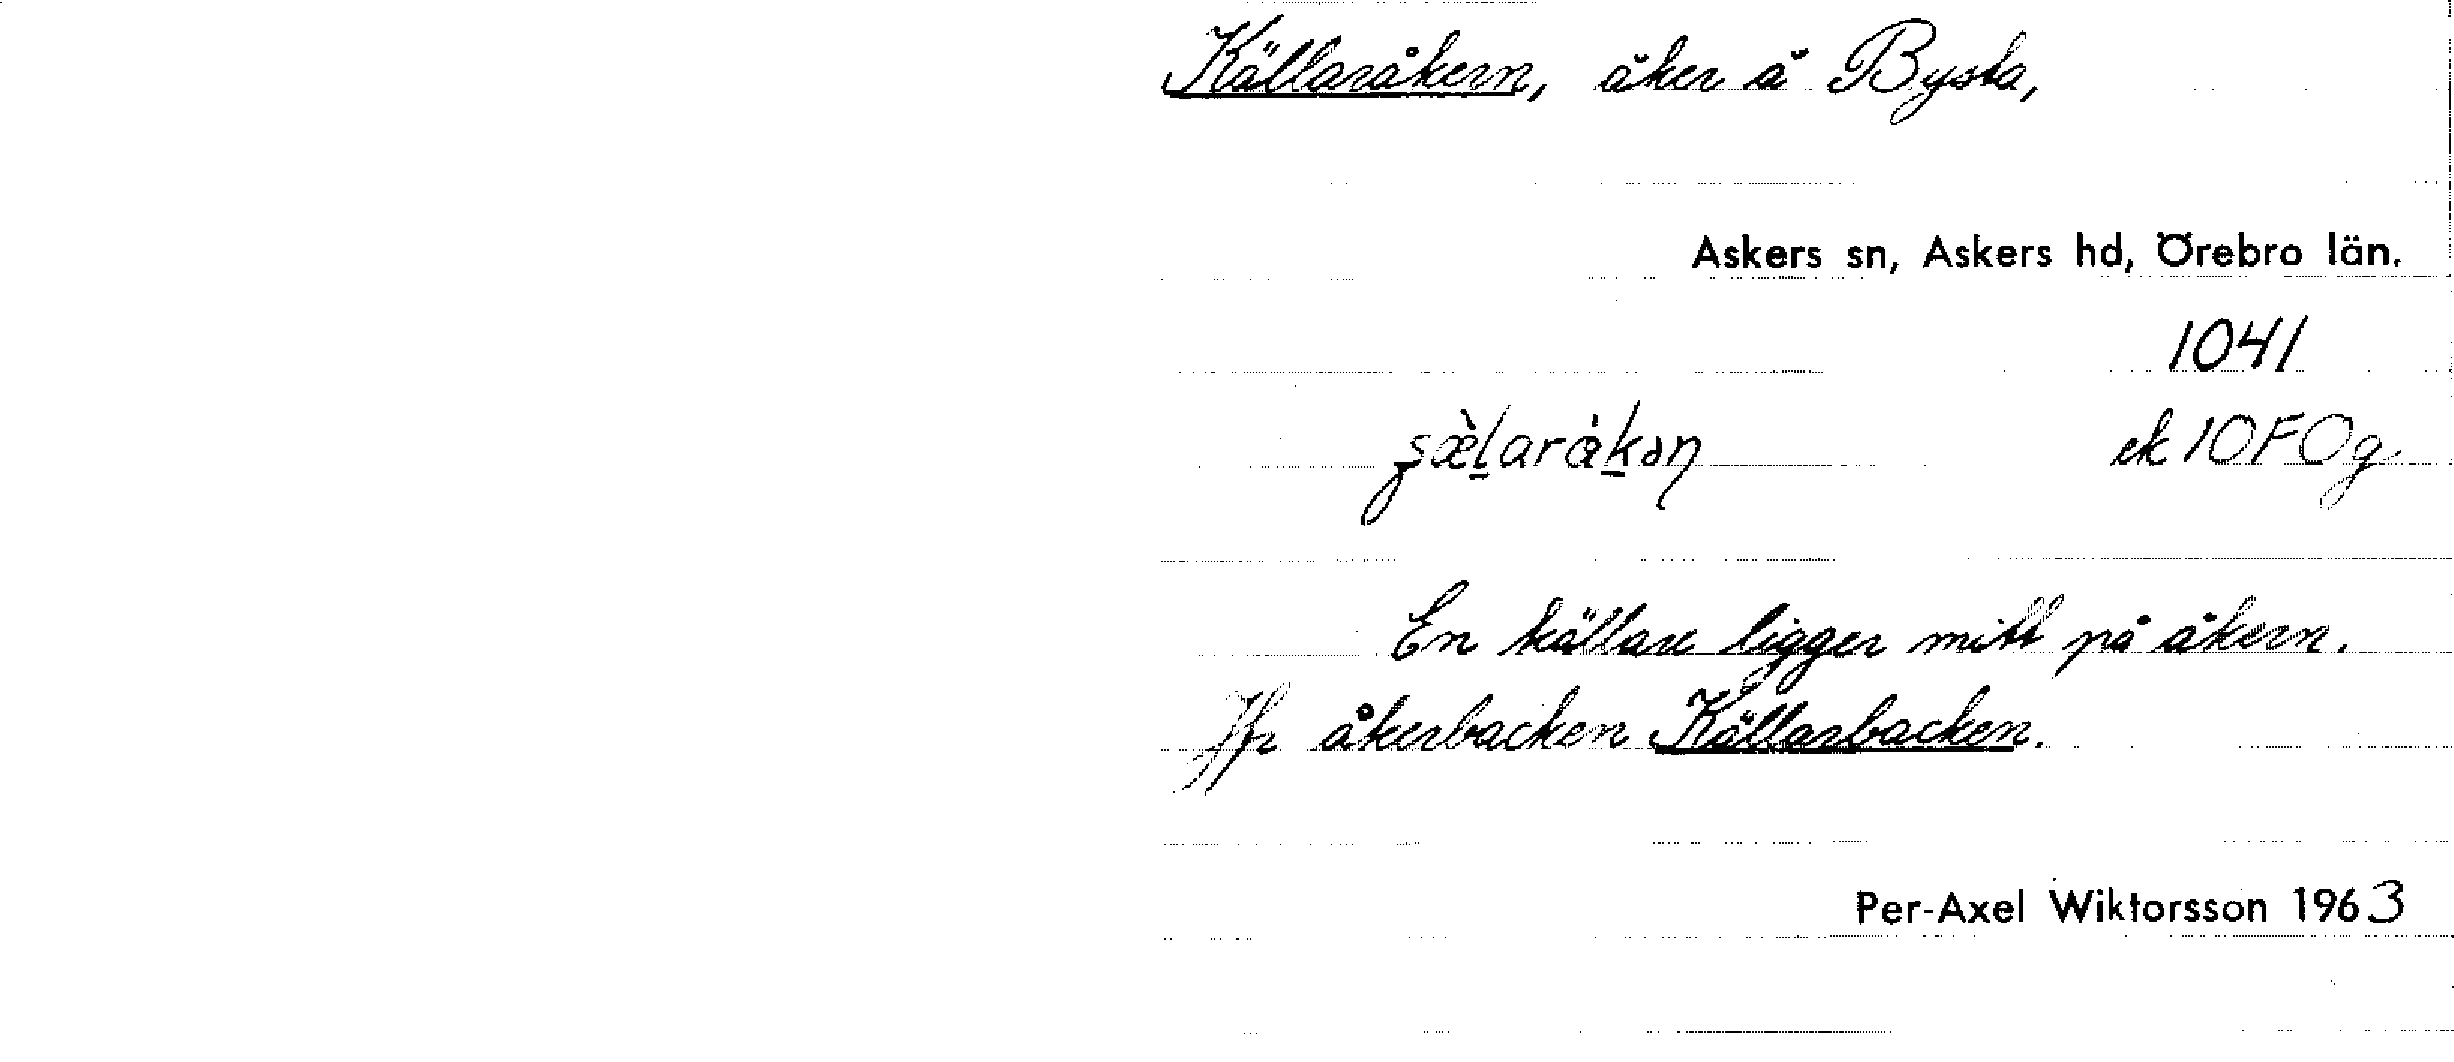 Källaråkern, åker å Bysta,
Askers sn, Askers hd, Örebro län.
1041
ek 10F0g
En källare ligger mitt på åkern.
Jfr åkerbacken Källarbacken.
Per-Axel Wiktorsson 1963